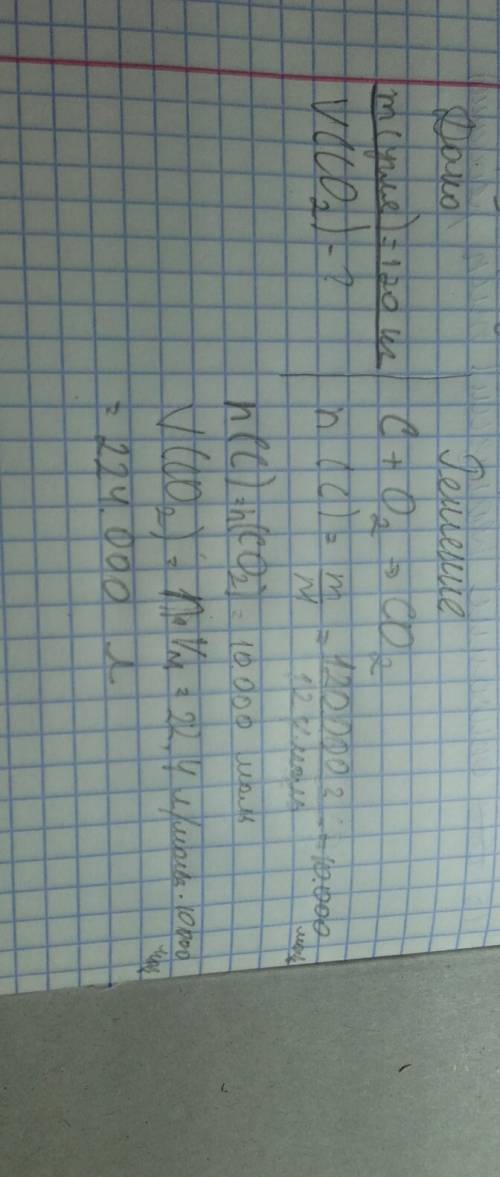 Дано
m(угля) = 120 кг
V(CO₂) - ?
Решение
C + O₂ → CO₂
n(C) = m/M = 120000 г / 12 г/моль = 10.000 моль
n(C) = n(CO₂) = 10000 моль
V(CO₂) = n · Vₘ = 22,4 л/моль · 10000 моль
= 224.000 л